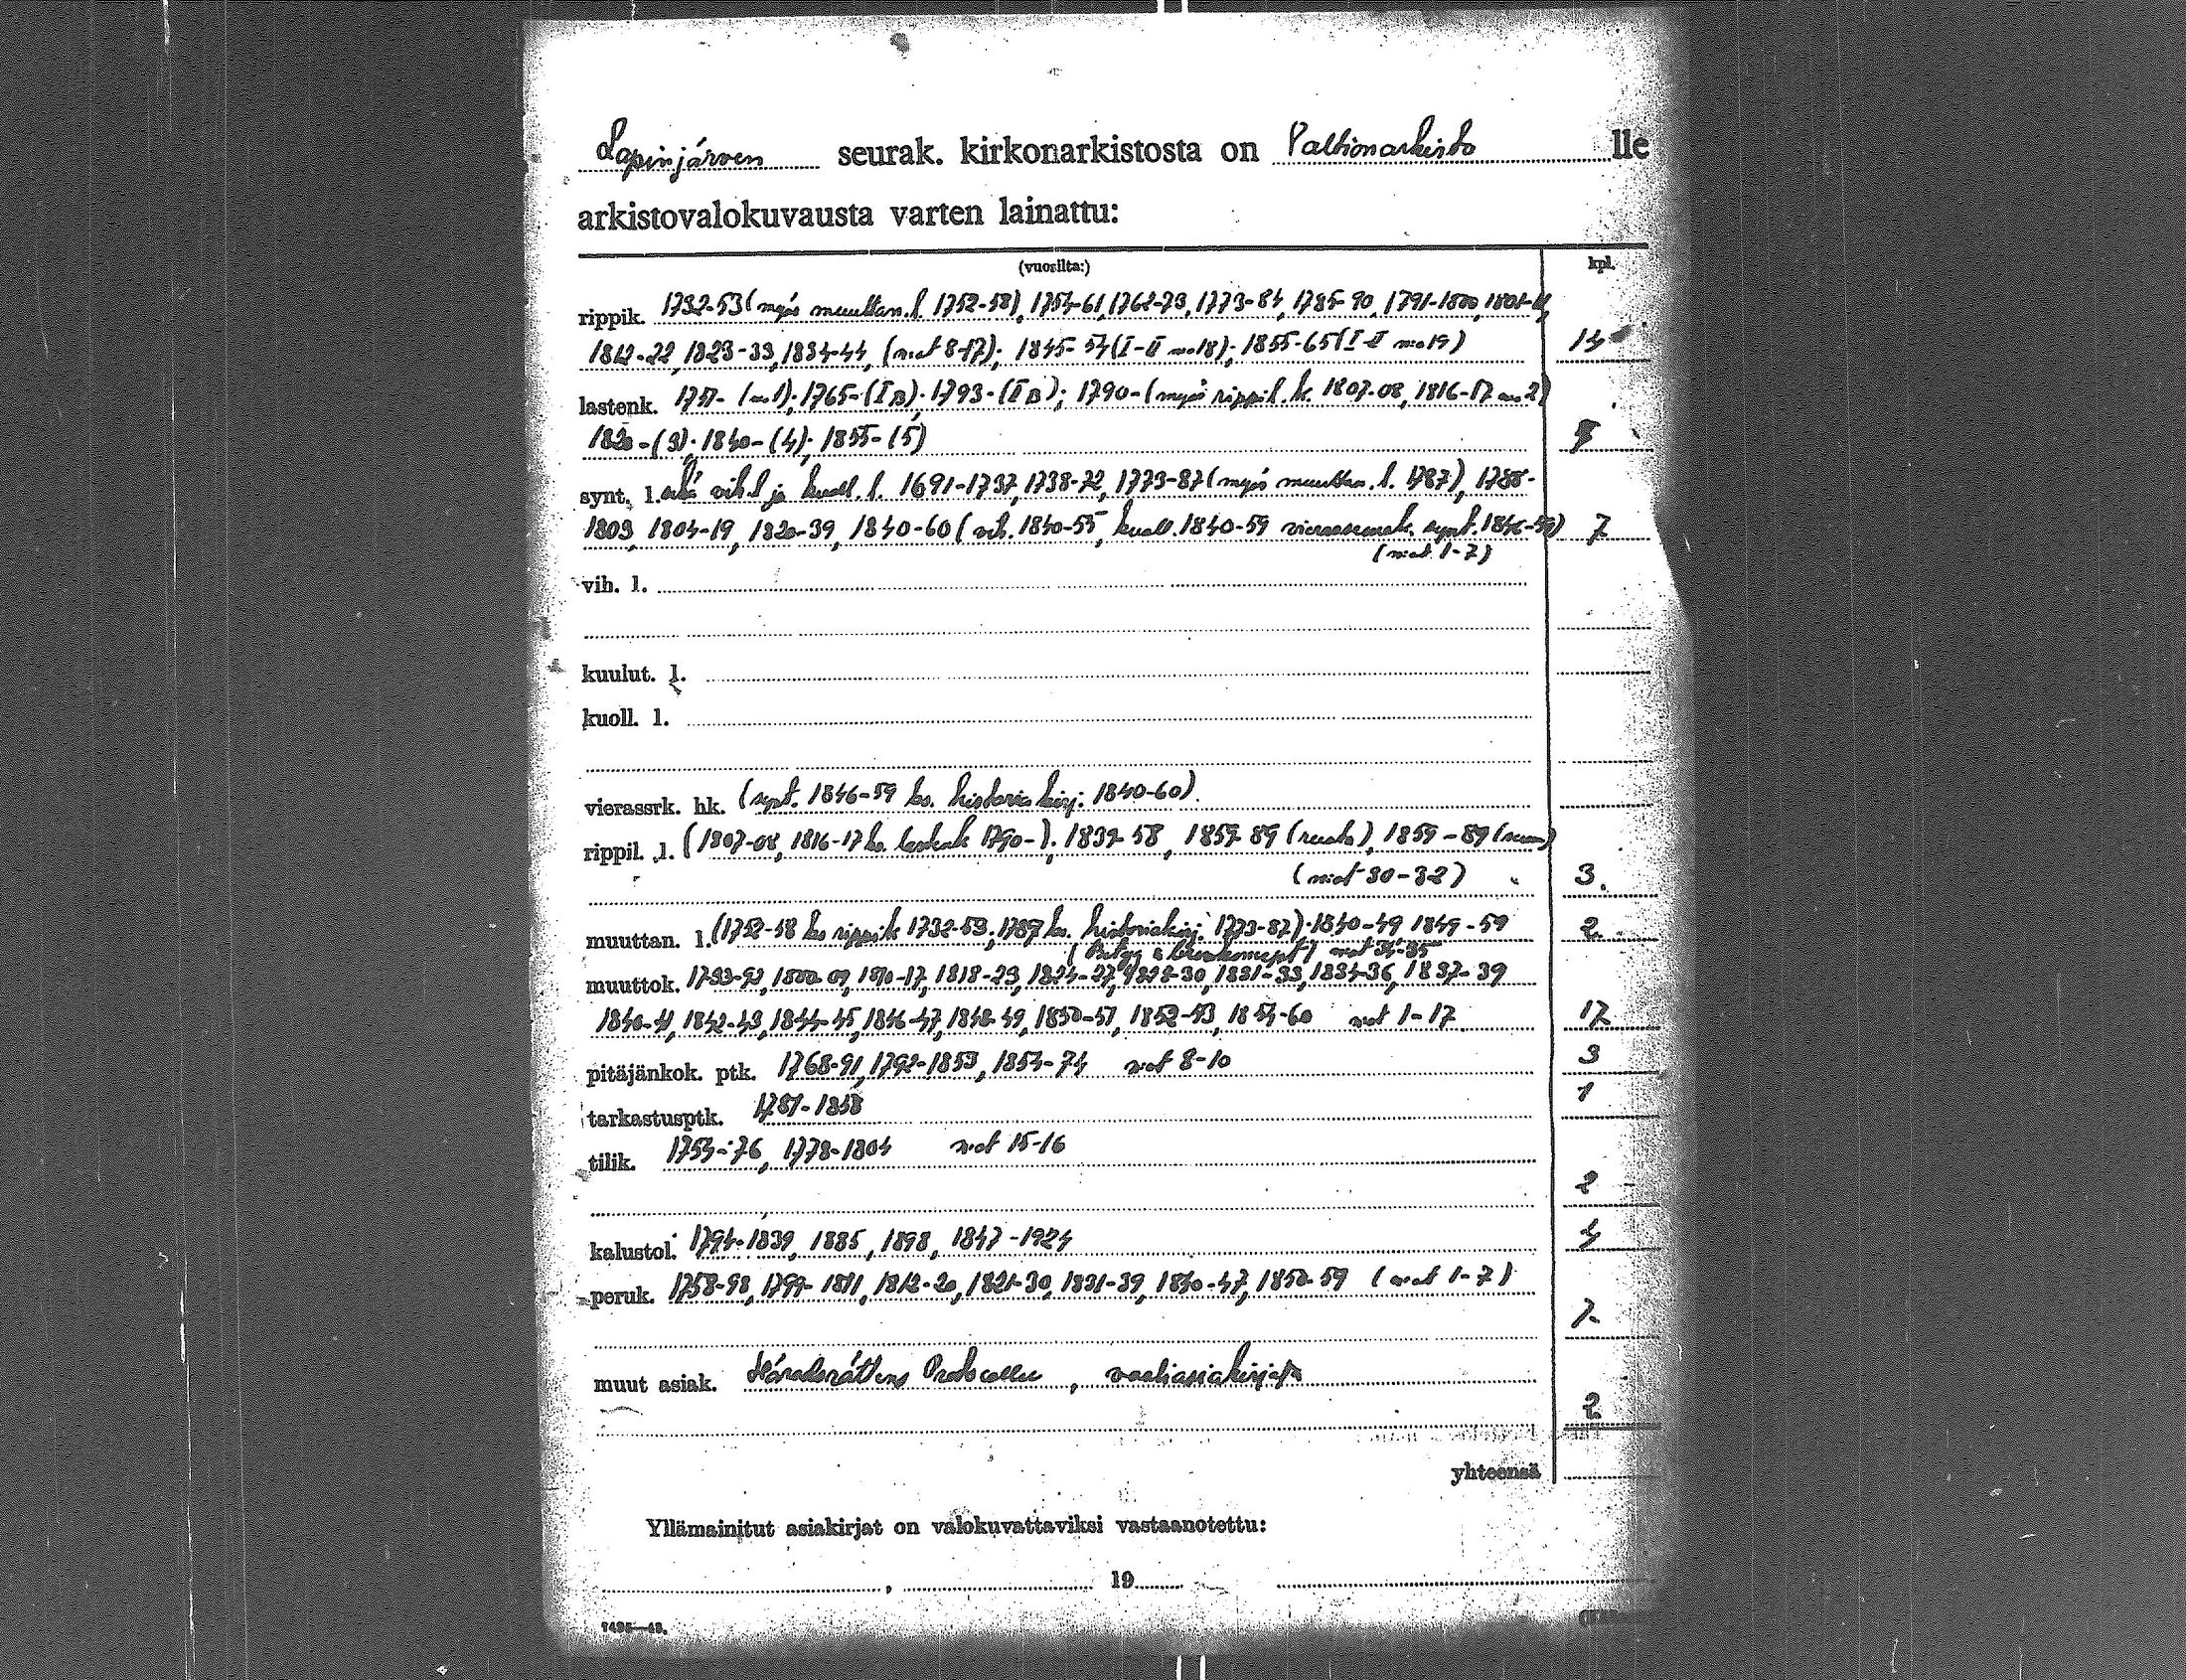 Lapinjärven seurak. kirkonarkistosta on Valtionarkisto lle
arkistovalokuvausta varten lainattu:
(vuosilta:) kpl.
rippik. 1732-53 (myös muuttan. l. 1752-58), 1754-61, 1762-73, 1773-84, 1785-90, 1791-1800, 1801-11,
1812-22, 1823-33, 1834-44, (n:ot 8-17); 1845-54 (I-II n:o 18); 1855-65 (I-II n:o 19) 14
lastenk. 1757- (n:o 1); 1765- (I B); 1793- (II B); 1790- (myös rippil. k. 1807-08, 1816-17 n:o 2)
1820- (3); 1840- (4); 1855- (5)
synt. l. sekä vih. l. ja kuoll. l. 1691-1737, 1738-72, 1773-87 (myös muuttan. l. 1787), 1788-
1803, 1804-19, 1820-39, 1840-60 (vih. 1840-55, kuoll. 1840-59 vierasseurak. synt. 1846-59) 7
(n:ot 1-7)
vih. l.
kuulut. l.
kuoll. l.
vierassrk. hk. (synt. 1846-59 ks. historiakirj. 1840-60).
rippil. l. (1807-08, 1816-17 ks. lastenk. 1790-); 1839-58, 1859-89 (ruots.), 1859-89 (suom)
(n:ot 30-32) 3.
muuttan. l. (1752-58 ks. rippik. 1732-53; 1787 ks. historiakirj. 1773-87); 1840-49 1849-59 2
n:ot 34-35
muuttok. 1793-99, 1800-09, 1810-17, 1818-23, 1824-27, 1828-30, 1831-33, 1834-36, 1837-39
1840-41, 1842-43, 1844-45, 1846-47, 1848-49, 1850-51, 1852-53, 1854-60 n:ot 1-17 17
pitäjänkok. ptk. 1768-91, 1792-1853, 1854-74 n:ot 8-10 3
tarkastusptk. 1751-1858 1
tilik. 1754-76, 1778-1804 n:ot 15-16
2
kalustol. 1794-1839, 1885, 1898, 1847-1924 4
peruk. 1758-98, 1799-1811, 1812-20, 1821-30, 1831-39, 1840-47, 1850-59 (n:ot 1-7)
7
muut asiak. Häradsrättens Protocoller, vaaliasiakirjoja
2
yhteensä
Yllämainitut asiakirjat on valokuvattaviksi vastaanotettu:
, 19